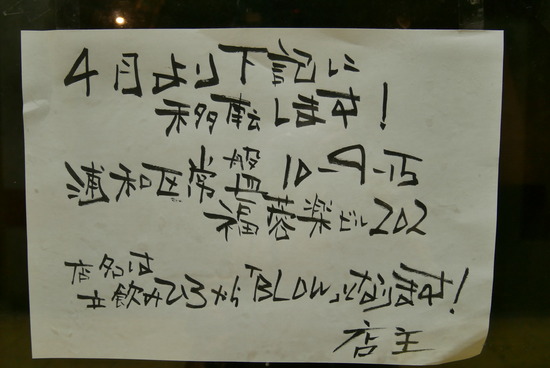 4月より下記に
移転します!
浦和区常盤10-9-15
福蓉楽ビル202
店名は
立飲みひろから「BLOW」になります!
店主